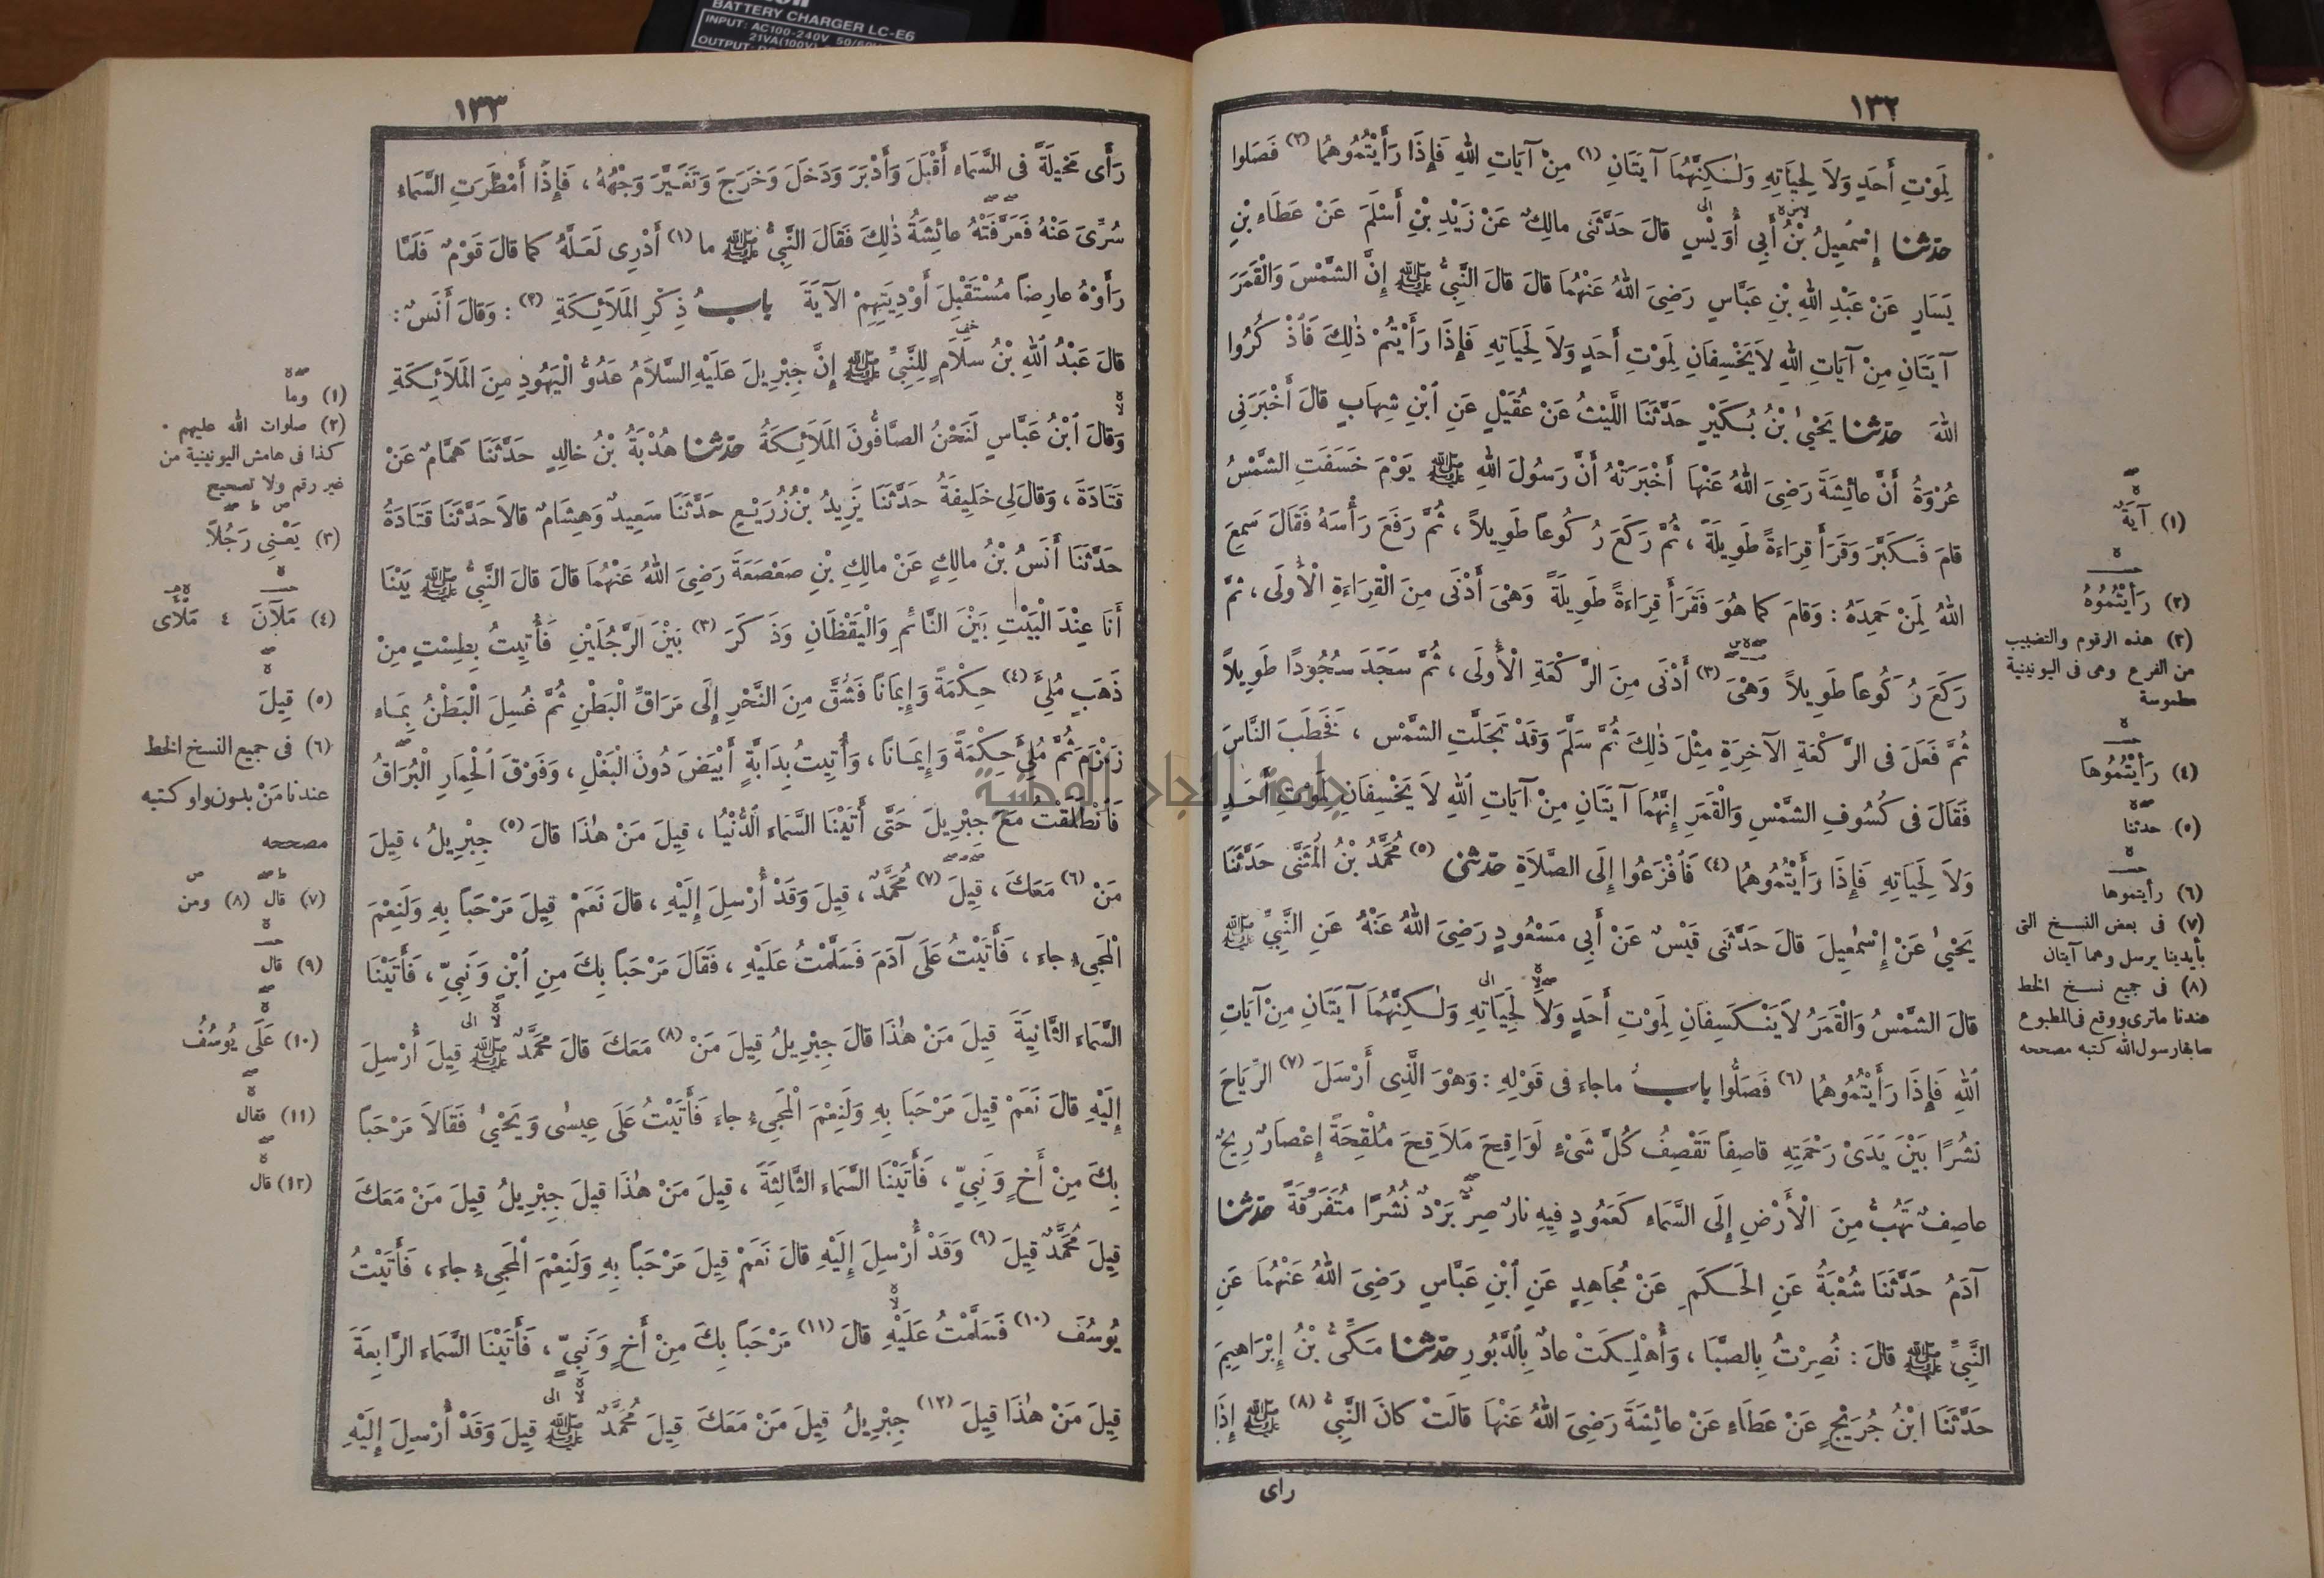 BATTERY CHARGER LC-E6
INPUT: AC100-240V 50/60H
21VA(100V)
OUTPUT:
١٣٢
لِمَوْتِ أَحَدٍ وَلاَ لِحَيَاتِهِ وَلٰكِنَّهُمَا آيَتَانِ (١) مِنْ آيَاتِ اللهِ فَإِذَا رَأَيْتُمُوهُمَا (٢) فَصَلُوا
حدثنا إِسْمٰعِيلُ بْنُ أَبِي أُوَيْسٍ قالَ حَدَّثَنِي مالِكٌ عَنْ زَيْدِ بْنِ أَسْلَمَ عَنْ عَطَاءِ بْنِ
يَسَارٍ عَنْ عَبْدِ اللهِ بْنِ عَبَّاسٍ رَضِيَ اللهُ عَنْهُمَا قالَ قالَ النَّبِيُّ ﷺ إِنَّ الشَّمْسَ وَالْقَمَرَ
آيَتَانِ مِنْ آيَاتِ اللهِ لاَ يَخْسِفَانِ لِمَوْتِ أَحَدٍ وَلاَ لِحَيَاتِهِ فَإِذَا رَأَيْتُمْ ذٰلِكَ فَاذْكُرُوا
اللهَ حدثنا يَحْيىٰ بْنُ بُكَيْرٍ حَدَّثَنَا اللَّيْثُ عَنْ عُقَيْلٍ عَنِ ابْنِ شِهَابٍ قالَ أَخْبَرَنِي
عُرْوَةُ أَنَّ عائِشَةَ رَضِيَ اللهُ عَنْهَا أَخْبَرَتْهُ أَنَّ رَسُولَ اللهِ ﷺ يَوْمَ خَسَفَتِ الشَّمْسُ
قامَ فَكَبَّرَ وَقَرَأَ قِرَاءَةً طَوِيلَةً ، ثُمَّ رَكَعَ رُكُوعاً طَوِيلاً ، ثُمَّ رَفَعَ رَأْسَهُ فَقَالَ سَمِعَ
اللهُ لِمَنْ حَمِدَهُ : وَقامَ كما هُوَ فَقَرَأَ قِرَاءَةً طَوِيلَةً وَهْيَ أَدْنَى مِنَ الْقِرَاءَةِ الْأُولَى ، ثمَّ
رَكَعَ رُكُوعاً طَوِيلاً وَهْيَ (٣) أَدْنَى مِنَ الرَّكْعَةِ الْأُولَى ، ثُمَّ سَجَدَ سُجُودًا طَوِيلاً
ثُمَّ فَعَلَ فى الرَّكْعَةِ الآخِرَةِ مِثْلَ ذٰلِكَ ثُمَّ سَلَّمَ وَقَدْ تَجَلَّتِ الشَّمْسُ ، فَخَطَبَ النَّاسَ
فَقَالَ فى كُسُوفِ الشَّمْسِ وَالْقَمَرِ إِنَّهُمَا آيَتَانِ مِنْ آيَاتِ اللهِ لاَ يَخْسِفَانِ لِمَوْتِ أَحَدٍ
وَلاَ لِحَيَاتِهِ فَإِذَا رَأَيْتُمُوهُمَا (٤) فَافْزَعُوا إِلَى الصَّلاَةِ حدثنى (٥) مُحَمَّدُ بْنُ الْمُثَنَّى حَدَّثَنَا
يَحْيىٰ عَنْ إِسْمٰعِيلَ قالَ حَدَّثَنِى قَيْسٌ عَنْ أَبِي مَسْعُودٍ رَضِيَ اللهُ عَنْهُ عَنِ النَّبِيِّ ﷺ
قالَ الشَّمْسُ وَالْقَمَرُ لاَ يَنْكَسِفَانِ لِمَوْتِ أَحَدٍ وَلاَ لِحَيَاتِهِ وَلٰكِنَّهُمَا آيَتَانِ مِنْ آيَاتِ
اللهِ فَإِذَا رَأَيْتُمُوهُمَا (٦) فَصَلُّوا باب ماجاء فى قَوْلِهِ : وَهْوَ الَّذِى أَرْسَلَ (٧) الرِّيَاحَ
نشُرًا بَيْنَ يَدَىْ رَحْمَتِهِ قاصِفاً تَقْصِفُ كُلَّ شَىْءٍ لَوَاقِحَ مَلاَقِحَ مُلْقِحَةً إِعْصَارٌ رِيحٌ
عاصِفٌ تَهُبُّ مِنَ الْأَرْضِ إِلَى السَّمَاءِ كَعَمُودٍ فِيهِ نارٌ صِرٌّ بَرْدٌ نُشُرًا مُتَفَرِّقَةً حدثنا
آدَمُ حَدَّثَنَا شُعْبَةُ عَنِ الحَكَمِ عَنْ مُجَاهِدٍ عَنِ ابْنِ عَبَّاسٍ رَضِيَ اللهُ عَنْهُمَا عَنِ
النَّبِيِّ ﷺ قالَ : نُصِرْتُ بِالصَّبَا ، وَأُهْلِكَتْ عادٌ بِالدَّبُورِ حدثنا مَكِّىُّ بْنُ إِبْرَاهِيمَ
حَدَّثَنَا ابْنُ جُرَيْجٍ عَنْ عَطَاءٍ عَنْ عائِشَةَ رَضِيَ اللهُ عَنْهَا قالَتْ كانَ النَّبِيُّ (٨) ﷺ إِذَا
راى
(١) آيَةٌ
(٢) رَأَيْتُمُوهُ
(٣) هذه الرقوم والتضبيب
من الفرع وهى فى اليونينية
مطموسة
(٤) رَأَيْتُمُوهَا
(٥) حدثنا
(٦) رأيتموها
(٧) فى بعض النسخ التى
بأيدينا يرسل وهما آيتان
(٨) فى جميع نسخ الخط
عندنا ماترى ووقع فى المطبوع
سابقا رسول الله كتبه مصححه
١٣٣
رَأَى مَخِيلَةً فى السَّمَاءِ أَقْبَلَ وَأَدْبَرَ وَدَخَلَ وَخَرَجَ وَتَغَيَّرَ وَجْهُهُ ، فَإِذَا أَمْطَرَتِ السَّمَاءُ
سُرِّىَ عَنْهُ فَعَرَّفَتْهُ عائِشَةُ ذٰلِكَ فَقَالَ النَّبِيُّ ﷺ ما (١) أَدْرِى لَعَلَّهُ كما قالَ قَوْمٌ فَلَمَّا
رَأَوْهُ عارِضاً مُسْتَقْبِلَ أَوْدِيَتِهِمْ الآيَةَ باب ذِكْرِ المَلاَئِكَةِ (٢) : وَقالَ أَنَسٌ :
قالَ عَبْدُ اللهِ بْنُ سَلاَمٍ لِلنَّبِيِّ ﷺ إِنَّ جِبْرِيلَ عَلَيْهِ السَّلاَمُ عَدُوُّ الْيَهُودِ مِنَ المَلاَئِكَةِ
وَقالَ ابْنُ عَبَّاسٍ لَنَحْنُ الصَّافُّونَ المَلاَئِكَةُ حدثنا هُدْبَةُ بْنُ خالِدٍ حَدَّثَنَا هَمَّامٌ عَنْ
قَتَادَةَ ، وَقالَ لِى خَلِيفَةُ حَدَّثَنَا يَزِيدُ بْنُ زُرَيْعٍ حَدَّثَنَا سَعِيدٌ وَهِشَامٌ قالاَ حَدَّثَنَا قَتَادَةُ
حَدَّثَنَا أَنَسُ بْنُ مالِكٍ عَنْ مالِكِ بْنِ صَعْصَعَةَ رَضِيَ اللهُ عَنْهُمَا قالَ قالَ النَّبِيُّ ﷺ بَيْنَا
أَنَا عِنْدَ الْبَيْتِ بَيْنَ النَّائِمِ وَالْيَقْظَانِ وَذَكَرَ (٣) بَيْنَ الرَّجُلَيْنِ فَأُتِيتُ بِطِسْتٍ مِنْ
ذَهَبٍ مُلِئَ (٤) حِكْمَةً وَإِيمَانًا فَشُقَّ مِنَ النَّحْرِ إِلَى مَرَاقِّ الْبَطْنِ ثُمَّ غُسِلَ الْبَطْنُ بِمَاءِ
زَمْزَمَ ثُمَّ مُلِئَ حِكْمَةً وَإِيمَانًا ، وَأُتِيتُ بِدَابَّةٍ أَبْيَضَ دُونَ الْبَغْلِ ، وَفَوْقَ الْحِمَارِ الْبُرَاقُ
فَانْطَلَقْتُ مَعَ جِبْرِيلَ حَتَّى أَتَيْنَا السَّمَاءَ الدُّنْيَا ، قِيلَ مَنْ هٰذَا قالَ (٥) جِبْرِيلُ ، قِيلَ
مَنْ (٦) مَعَكَ ، قِيلَ (٧) مُحَمَّدٌ ، قِيلَ وَقَدْ أُرْسِلَ إِلَيْهِ ، قالَ نَعَمْ قِيلَ مَرْحَباً بِهِ وَلَنِعْمَ
الْمَجِىءُ جاء ، فَأَتَيْتُ عَلَى آدَمَ فَسَلَّمْتُ عَلَيْهِ ، فَقَالَ مَرْحَباً بِكَ مِنِ ابْنٍ وَنَبِيٍّ ، فَأَتَيْنَا
السَّمَاءَ الثَّانِيَةَ قِيلَ مَنْ هٰذَا قالَ جِبْرِيلُ قِيلَ مَنْ (٨) مَعَكَ قالَ مُحَمَّدٌ ﷺ قِيلَ أُرْسِلَ
إِلَيْهِ قالَ نَعَمْ قِيلَ مَرْحَباً بِهِ وَلَنِعْمَ الْمَجِىءُ جاءَ فَأَتَيْتُ عَلَى عِيسٰى وَيَحْيىٰ فَقَالاَ مَرْحَباً
بِكَ مِنْ أَخٍ وَنَبِيٍّ ، فَأَتَيْنَا السَّمَاءَ الثَّالِثَةَ ، قِيلَ مَنْ هٰذَا قِيلَ جِبْرِيلُ قِيلَ مَنْ مَعَكَ
قِيلَ مُحَمَّدٌ قِيلَ (٩) وَقَدْ أُرْسِلَ إِلَيْهِ قالَ نَعَمْ قِيلَ مَرْحَباً بِهِ وَلَنِعْمَ الْمَجِىءُ جاء ، فَأَتَيْتُ
يُوسُفَ (١٠) فَسَلَّمْتُ عَلَيْهِ قالَ (١١) مَرْحَباً بِكَ مِنْ أَخٍ وَنَبِيٍّ ، فَأَتَيْنَا السَّمَاءَ الرَّابِعَةَ
قِيلَ مَنْ هٰذَا قِيلَ (١٢) جِبْرِيلُ قِيلَ مَنْ مَعَكَ قِيلَ مُحَمَّدٌ ﷺ قِيلَ وَقَدْ أُرْسِلَ إِلَيْهِ
(١) وما
(٢) صلوات الله عليهم .
كذا فى هامش اليونينية من
غير رقم ولا تصحيح
(٣) يَعْنِى رَجُلاً
(٤) مَلآنَ ٤ مَلأى
(٥) قِيلَ
(٦) فى جميع النسخ الخط
عندنا مَنْ بدون واو كتبه
مصححه
(٧) قال (٨) ومن
(٩) قال
(١٠) عَلَى يُوسُفُ
(١١) فقال
(١٢) قال
جامعة النجاح الوطنية